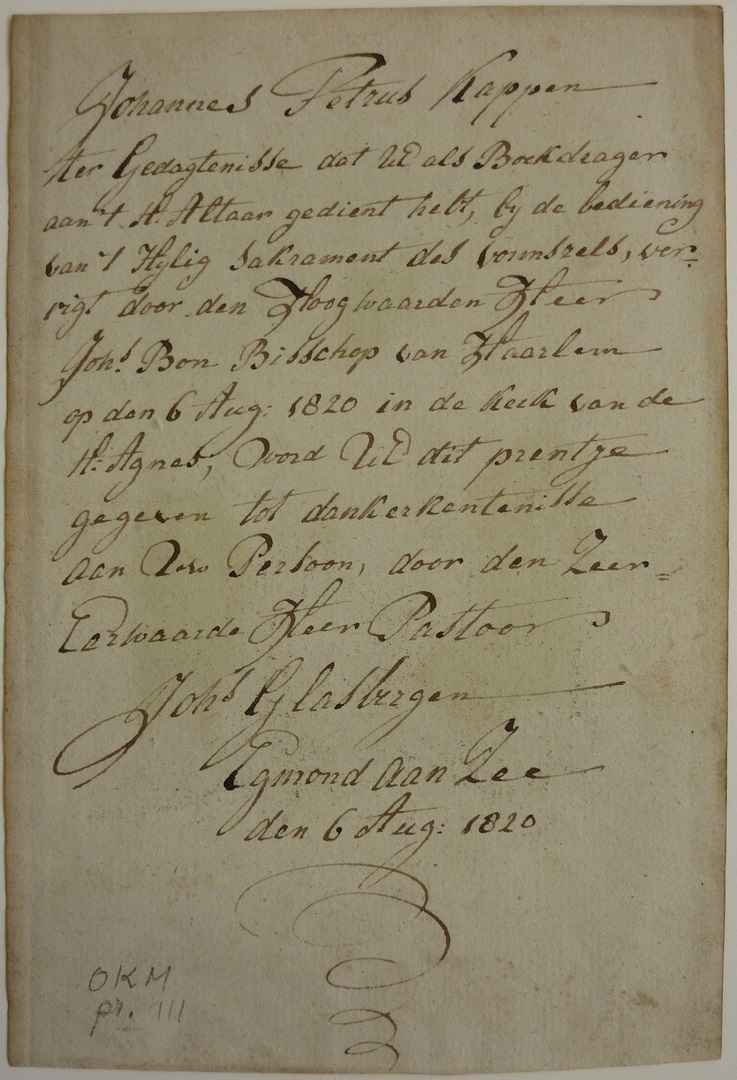 Johannes Petrus Kappen
ter Gedagtenisse dat UE als Boekdrager
aan't H. Altaar gedient hebt, by de bediening
van't Hylig sakrament des vormszels, ver-
rigt door den Hoogwaarden Heer
Johs Bon Bisschop van Haarlem
op den 6 Aug: 1820 in de kerk van de
H: Agnes, word UE dit prentje
gegeven tot dankerkentenisse
aan Uw Persoon, door den Zeer=
Eerwaarde Heer Pastoor
Johs Glasbergen
Egmond aan Zee
den 6 Aug: 1820
OKM
pr. III